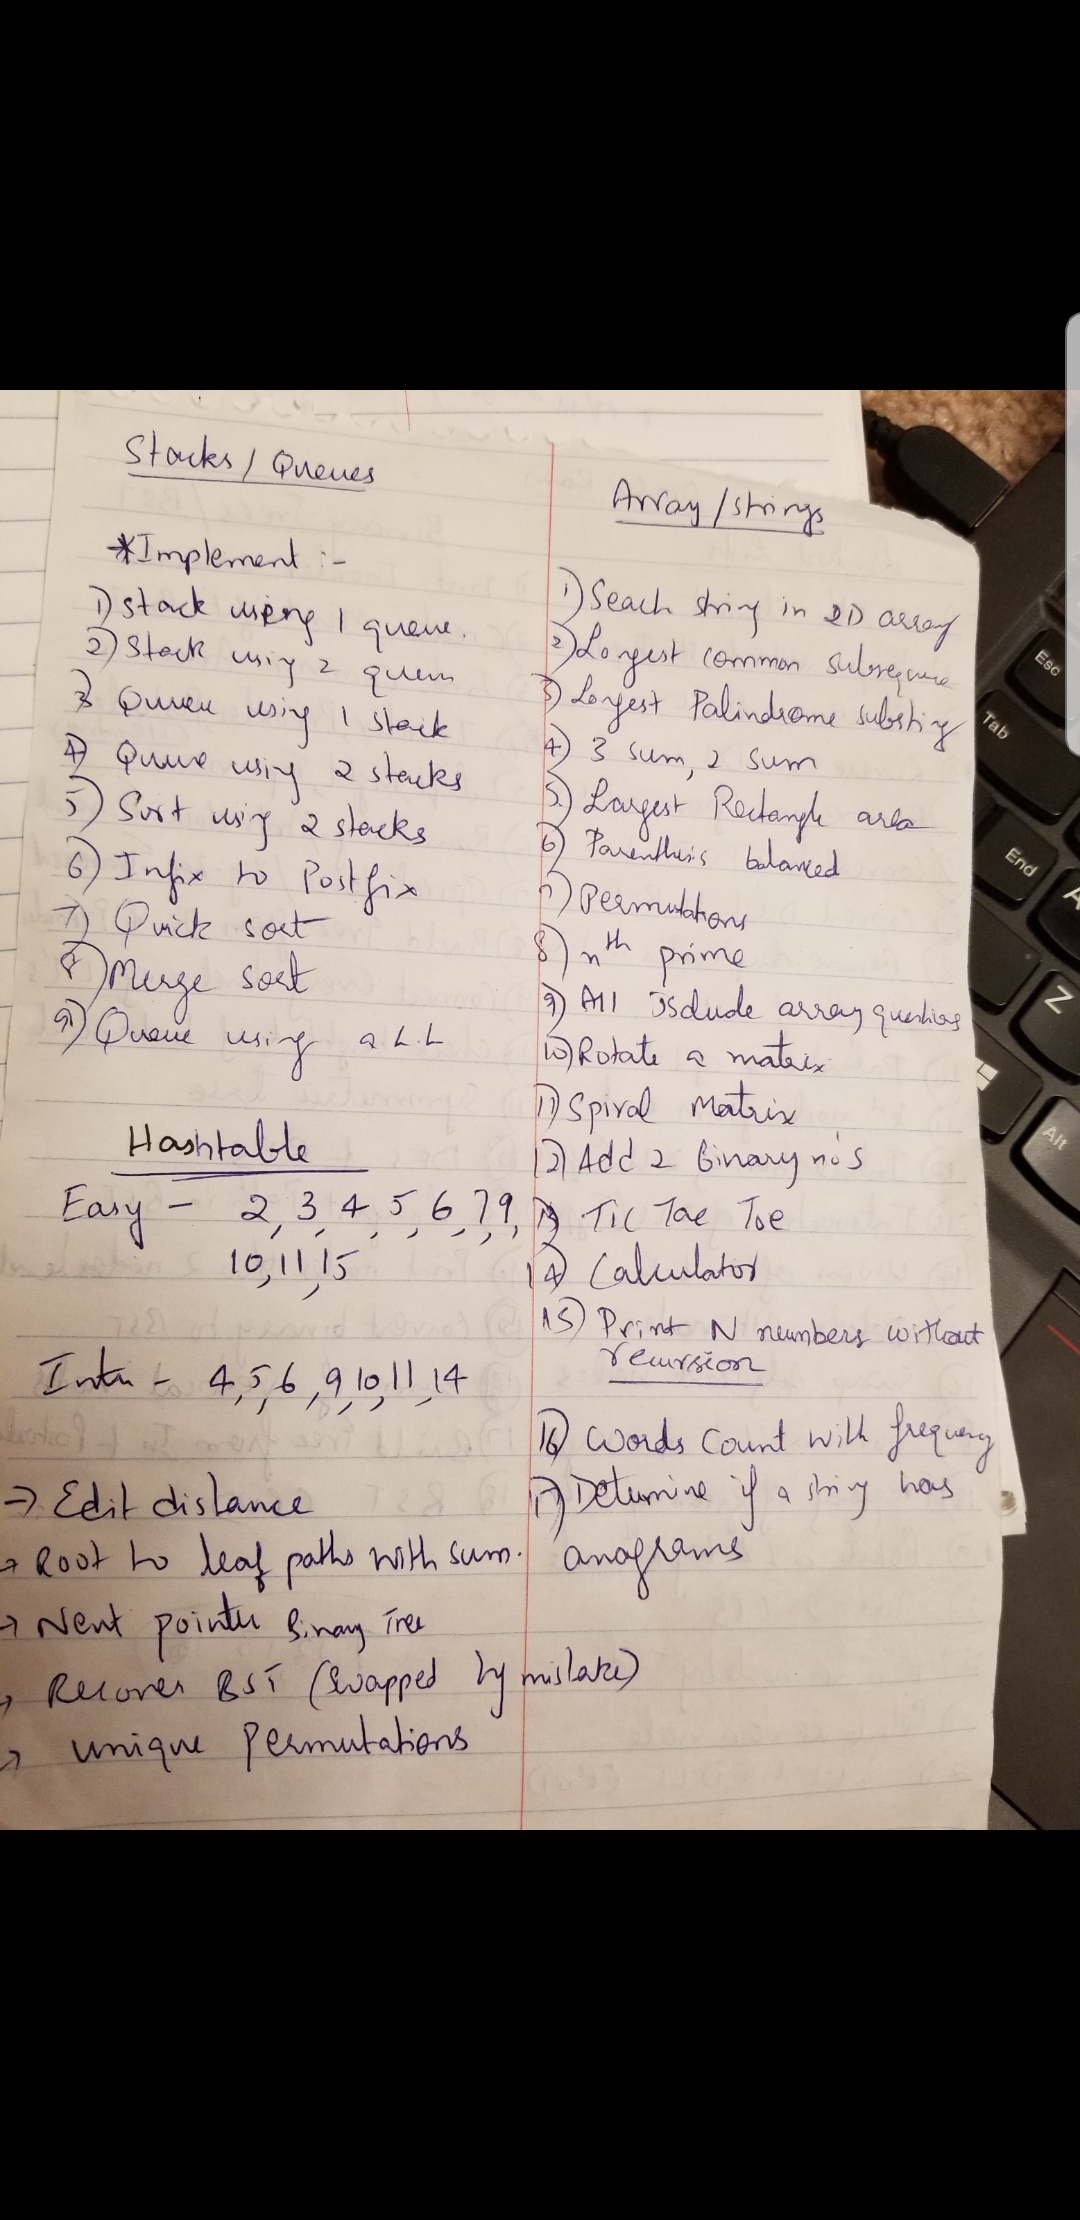 Stacks / Queues
*Implement :-
1) Stack using 1 queue.
2) Stack using 2 queu
3 Queue using 1 stack
4) Queue using 2 stacks
5) Sort using 2 stacks
6) Infix to Postfix
7) Quick sort
8) Merge sort
9) Queue using a L.L
Hashtable
Easy - 2, 3, 4, 5, 6, 7, 9,
10, 11, 15
Inter - 4, 5, 6, 9, 10, 11, 14
→ Edit distance
→ Root to leaf paths with sum.
→ Next pointer Binary Tree
→ Recover BST (swapped by mistake)
→ unique Permutations
Array / strings
1) Seach string in 2D array
2) Longest common subsequence
3) Longest Palindrome substring
4) 3 sum, 2 sum
5) Largest Rectangle area
6) Parenthesis balanced
7) Permutations
8) nth prime
9) All array questions
10) Rotate a matrix
11) Spiral Matrix
12) Add 2 Binary no's
13) Tic Tac Toe
14) Calculator
15) Print N numbers without
recursion
16) Words Count with frequency
17) Determine if a string has
anagrams
Esc
Tab
End
A
Z
Alt